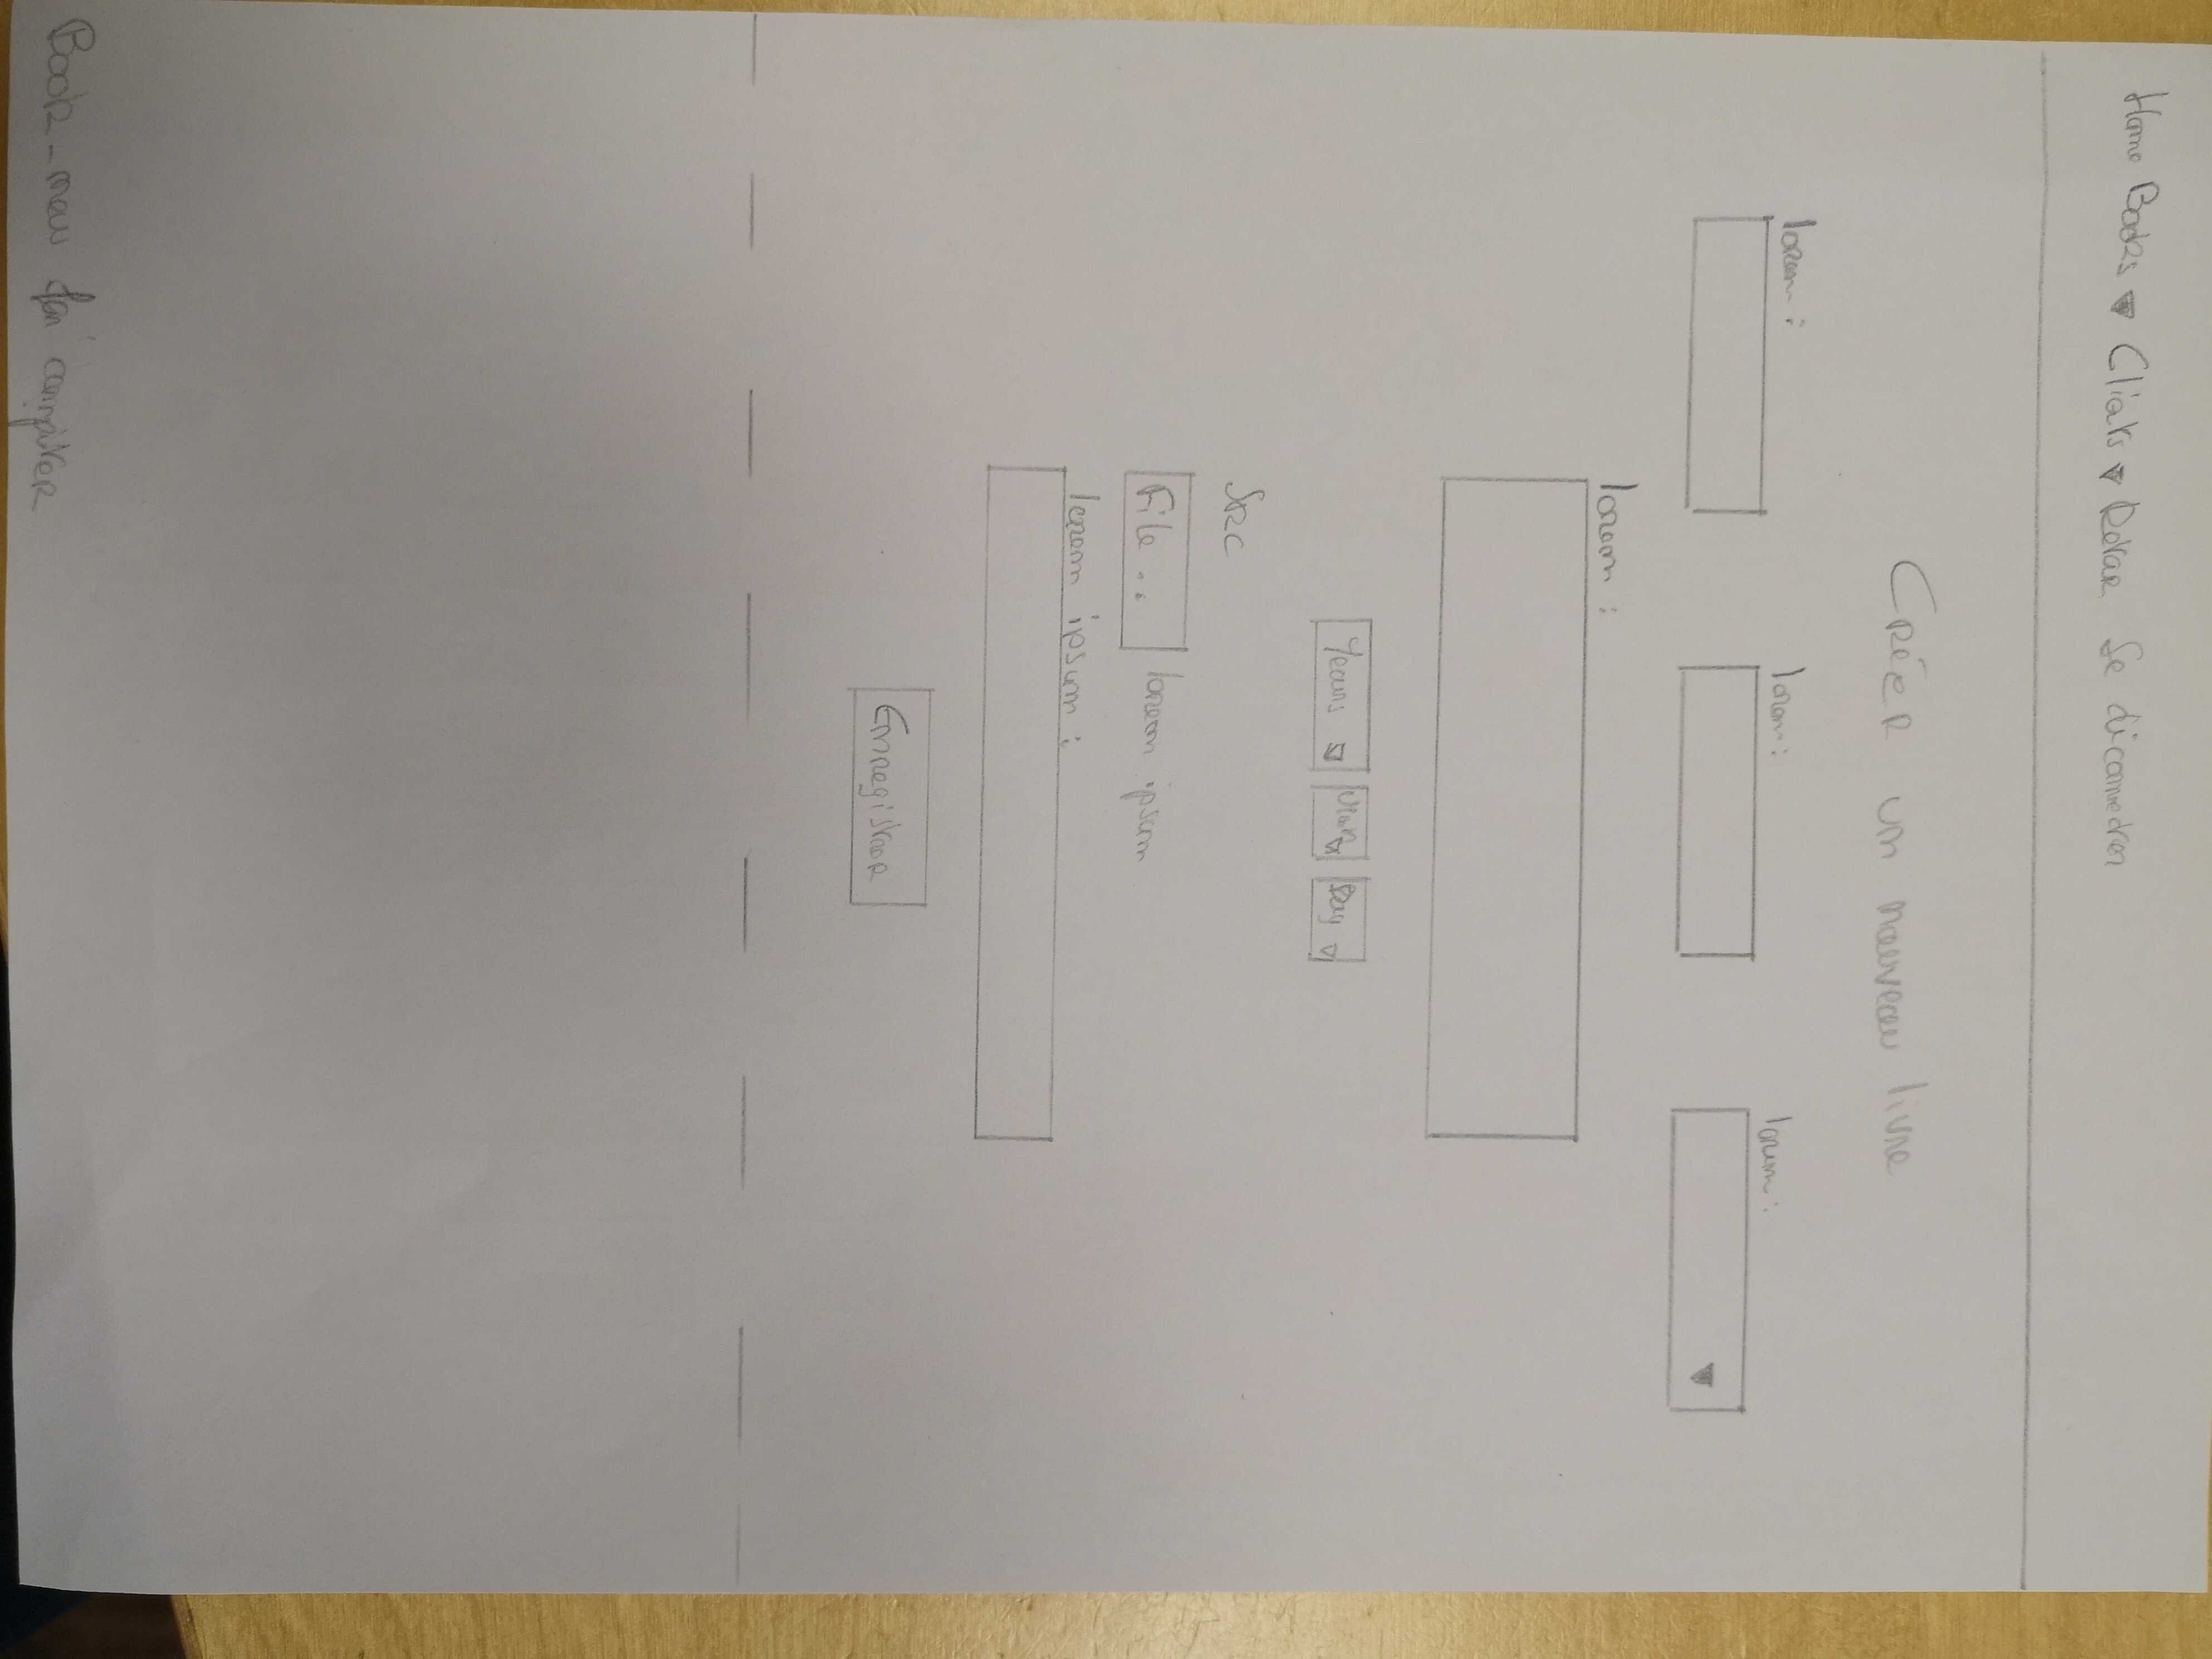 Home Books ▼ Clients ▼ Retar Se déconnecter
Créer un nouveau livre
lorem : lorem : lorum :
lorem :
Years Day
Src
File... lorem ipsum
lorem ipsum :
Enregistrer
Book-new for computer